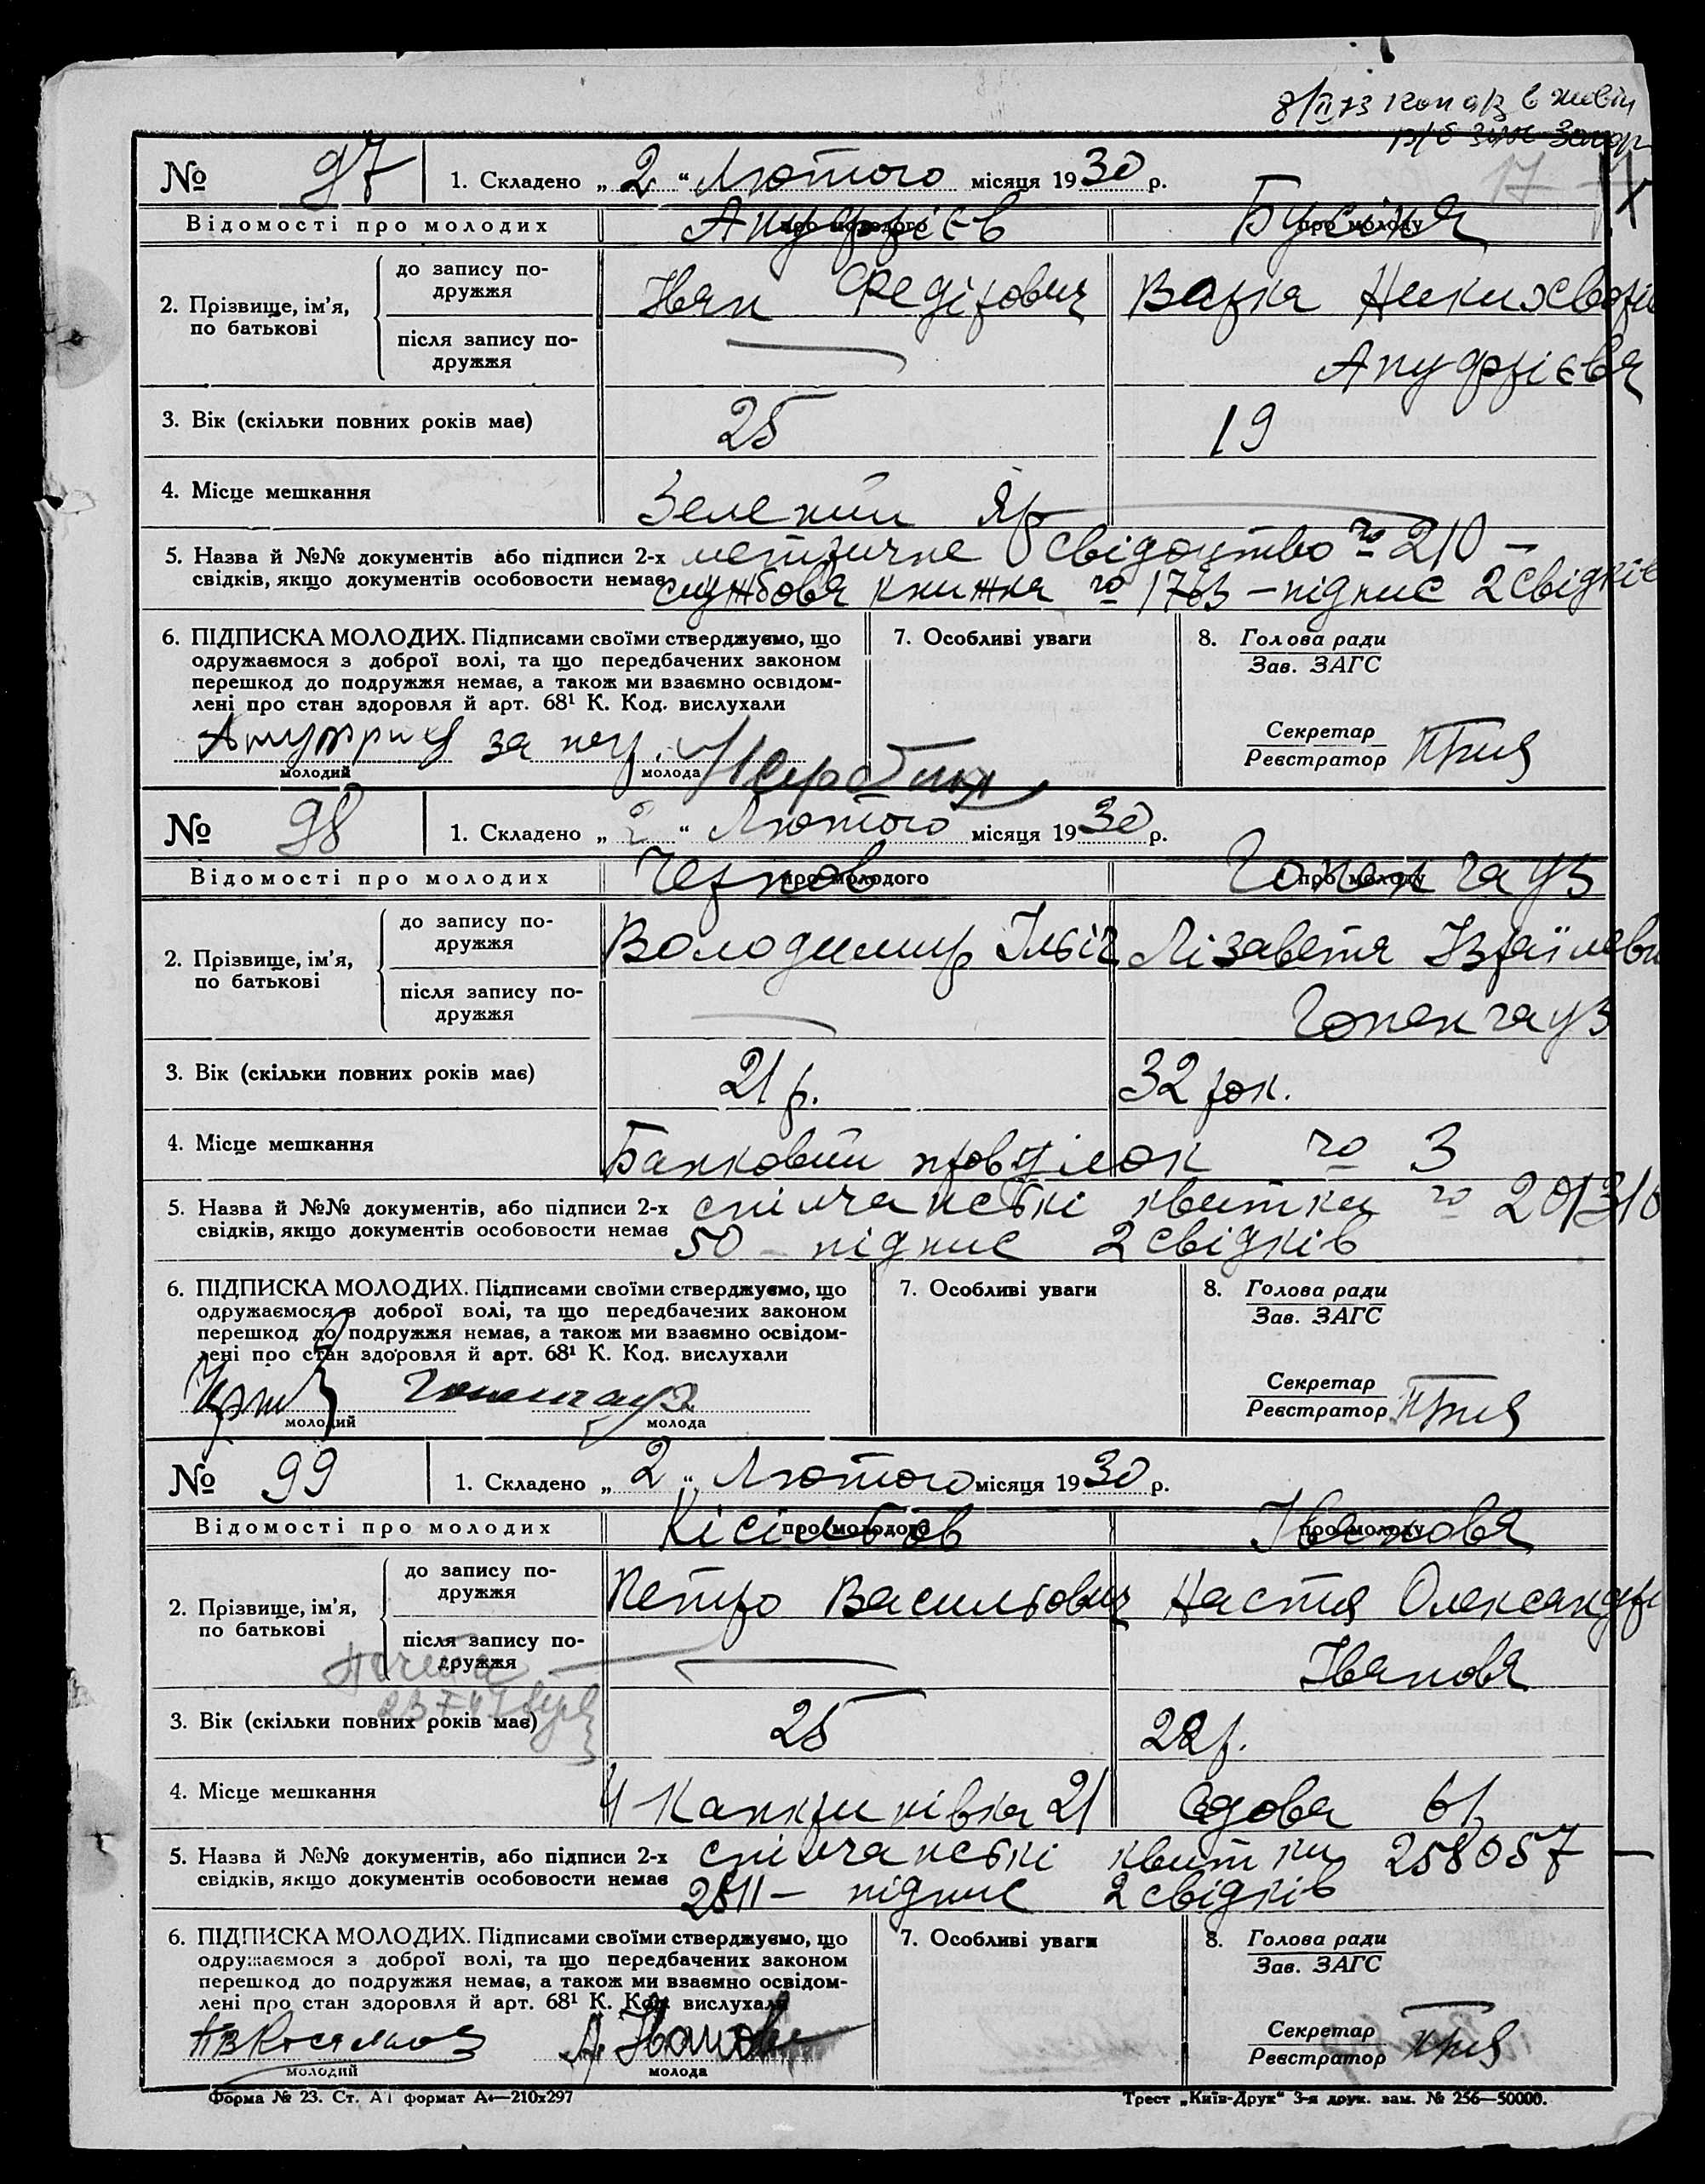 8/II 73
№ 97 1. Складено „ 2 “ Лютого місяця 1930 р.
Відомості про молодих про молодого Ануфрієв про молоду
2. Прізвище, ім’я, по батькові
до запису подружжя Іван Федірович Варка
після запису подружжя — Ануфрієва
3. Вік (скільки повних років має) 25 19
4. Місце мешкання Зелений Яр —
5. Назва й №№ документів або підписи 2-х метричне свідоцтво № 210 –
свідків, якщо документів особовости немає службова книжка № 1763 – підпис 2 свідків
6. ПІДПИСКА МОЛОДИХ. Підписами своїми стверджуємо, що
одружаємося з доброї волі, та що передбачених законом
перешкод до подружжя немає, а також ми взаємно освідом-
лені про стан здоровля й арт. 68¹ К. Код. вислухали
за
молодий молода
7. Особливі уваги
8. Голова ради
Зав. ЗАГС
Секретар
Реєстратор
№ 98 1. Складено „ 2 “ Лютого місяця 1930 р.
Відомості про молодих про молодого Чернов про молоду Гопенгауз
2. Прізвище, ім’я, по батькові
до запису подружжя Володимир Ільіч Лізавета
після запису подружжя — Гопенгауз
3. Вік (скільки повних років має) 21 р. 32 рок.
4. Місце мешкання Банковий провулок № 3
5. Назва й №№ документів, або підписи 2-х спілчанські квитки №
свідків, якщо документів особовости немає 50 – підпис 2 свідків
6. ПІДПИСКА МОЛОДИХ. Підписами своїми стверджуємо, що
одружаємося з доброї волі, та що передбачених законом
перешкод до подружжя немає, а також ми взаємно освідом-
лені про стан здоровля й арт. 68¹ К. Код. вислухали
Гопенгауз
молодий молода
7. Особливі уваги
8. Голова ради
Зав. ЗАГС
Секретар
Реєстратор
№ 99 1. Складено „ 2 “ Лютого місяця 1930 р.
Відомості про молодих про молодого про молоду Іванова
2. Прізвище, ім’я, по батькові
до запису подружжя Петро Васильович Настя
після запису подружжя — Іванова
3. Вік (скільки повних років має) 25 22 р.
4. Місце мешкання 21 61
5. Назва й №№ документів, або підписи 2-х спілчанські квитки 258057 –
свідків, якщо документів особовости немає 2511 – підпис 2 свідків
6. ПІДПИСКА МОЛОДИХ. Підписами своїми стверджуємо, що
одружаємося з доброї волі, та що передбачених законом
перешкод до подружжя немає, а також ми взаємно освідом-
лені про стан здоровля й арт. 68¹ К. Код. вислухали
молодий молода
7. Особливі уваги
8. Голова ради
Зав. ЗАГС
Секретар
Реєстратор
Форма № 23. Ст. А1 формат А4—210х297 Трест „Київ-Друк“ 3-я друк. зам. № 256—50000.